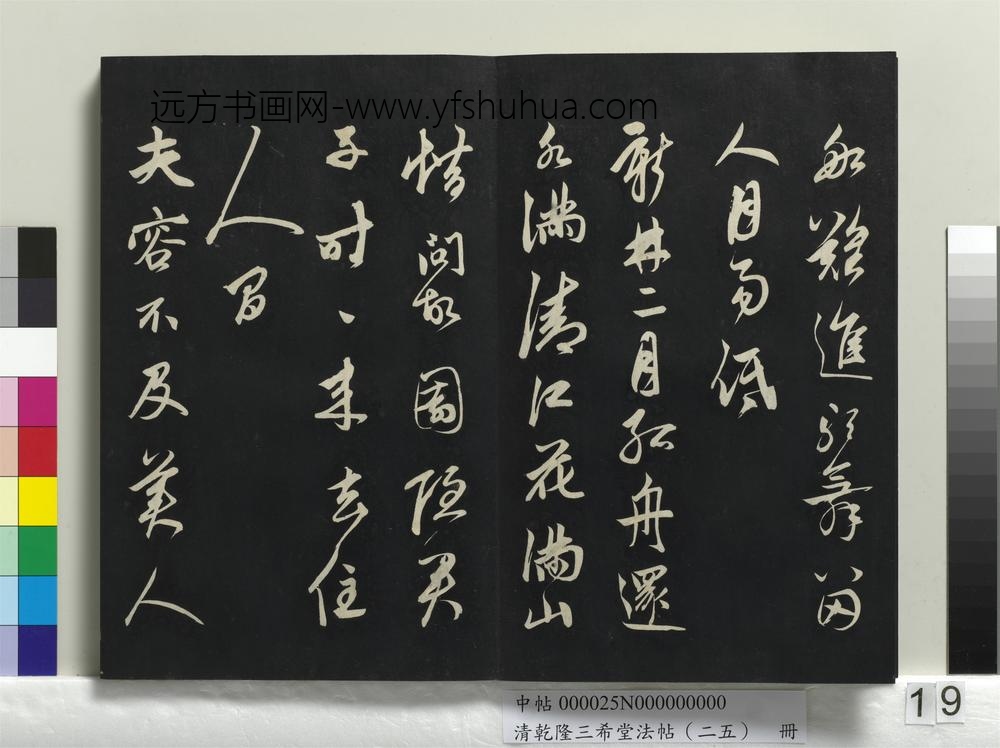 远方书画网-www.yfshuhua.com
船難進歌舞留
人月易低
新林二月孤舟還
水滿清江花滿山
借問故園隱君
子時、来去住
人間
夫容不及美人
中帖 000025N000000000
清乾隆三希堂法帖（二五） 冊
19